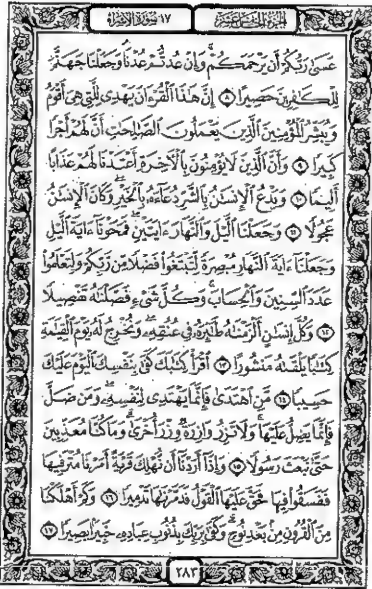 الجزء الخامس عشر ١٧ سورة الإسراء
عَسَىٰ رَبُّكُمْ أَن يَرْحَمَكُمْ وَإِنْ عُدتُّمْ عُدْنَا وَجَعَلْنَا جَهَنَّمَ
لِلْكَٰفِرِينَ حَصِيرًا ٨ إِنَّ هَٰذَا الْقُرْءَانَ يَهْدِى لِلَّتِى هِىَ أَقْوَمُ
وَيُبَشِّرُ الْمُؤْمِنِينَ الَّذِينَ يَعْمَلُونَ الصَّٰلِحَٰتِ أَنَّ لَهُمْ أَجْرًا
كَبِيرًا ٩ وَأَنَّ الَّذِينَ لَا يُؤْمِنُونَ بِالْءَاخِرَةِ أَعْتَدْنَا لَهُمْ عَذَابًا
أَلِيمًا ١٠ وَيَدْعُ الْإِنسَٰنُ بِالشَّرِّ دُعَاءَهُۥ بِالْخَيْرِ وَكَانَ الْإِنسَٰنُ
عَجُولًا ١١ وَجَعَلْنَا الَّيْلَ وَالنَّهَارَ ءَايَتَيْنِ فَمَحَوْنَا ءَايَةَ الَّيْلِ
وَجَعَلْنَا ءَايَةَ النَّهَارِ مُبْصِرَةً لِّتَبْتَغُوا فَضْلًا مِّن رَّبِّكُمْ وَلِتَعْلَمُوا
عَدَدَ السِّنِينَ وَالْحِسَابَ وَكُلَّ شَىْءٍ فَصَّلْنَٰهُ تَفْصِيلًا
١٢ وَكُلَّ إِنسَٰنٍ أَلْزَمْنَٰهُ طَٰٓئِرَهُۥ فِى عُنُقِهِۦ وَنُخْرِجُ لَهُۥ يَوْمَ الْقِيَٰمَةِ
كِتَٰبًا يَلْقَىٰهُ مَنشُورًا ١٣ اقْرَأْ كِتَٰبَكَ كَفَىٰ بِنَفْسِكَ الْيَوْمَ عَلَيْكَ
حَسِيبًا ١٤ مَّنِ اهْتَدَىٰ فَإِنَّمَا يَهْتَدِى لِنَفْسِهِۦ وَمَن ضَلَّ
فَإِنَّمَا يَضِلُّ عَلَيْهَا وَلَا تَزِرُ وَازِرَةٌ وِزْرَ أُخْرَىٰ وَمَا كُنَّا مُعَذِّبِينَ
حَتَّىٰ نَبْعَثَ رَسُولًا ١٥ وَإِذَا أَرَدْنَا أَن نُّهْلِكَ قَرْيَةً أَمَرْنَا مُتْرَفِيهَا
فَفَسَقُوا فِيهَا فَحَقَّ عَلَيْهَا الْقَوْلُ فَدَمَّرْنَٰهَا تَدْمِيرًا ١٦ وَكَمْ أَهْلَكْنَا
مِنَ الْقُرُونِ مِنۢ بَعْدِ نُوحٍ وَكَفَىٰ بِرَبِّكَ بِذُنُوبِ عِبَادِهِۦ خَبِيرًۢا بَصِيرًا ١٧
٢٨٣